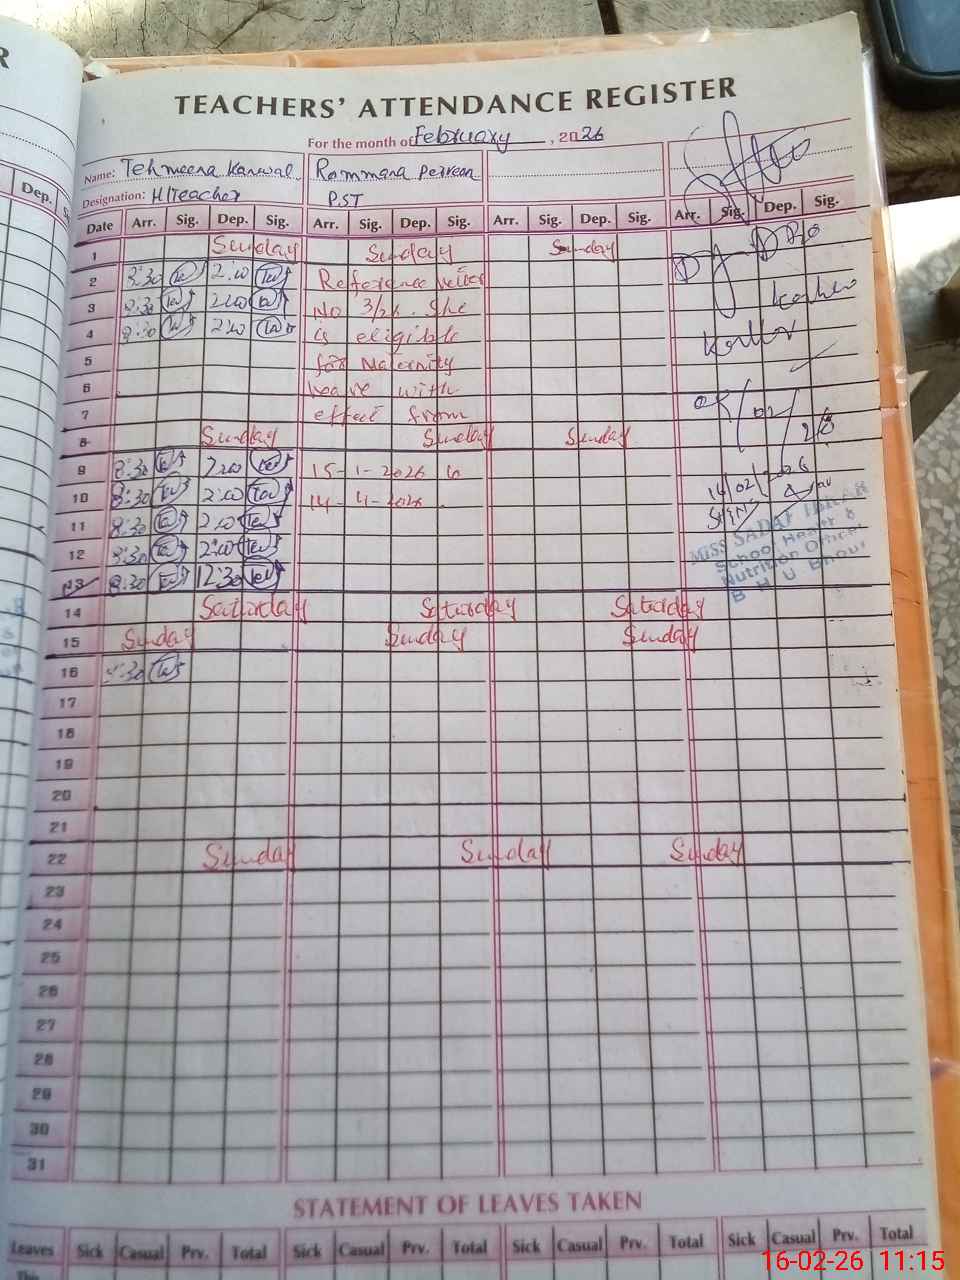 R
Dep.
TEACHERS' ATTENDANCE REGISTER
For the month of February, 2026
Name: Tehmeena Kanwal Rommana Perveen
Designation: H/Teacher P.ST
Date Arr. Sig. Dep. Sig. Arr. Sig. Dep. Sig. Arr. Sig. Dep. Sig. Arr. Sig. Dep. Sig.
1 Sunday Sunday Sunday
2 8:30 2:00 Reference letter
3 8:30 2:00 No 3/26. She
4 8:30 2:00 is eligible
5 for Maternity
6 leave with
7 effect from
8 Sunday Sunday Sunday
9 8:30 2:00 15-1-2026 to
10 8:30 2:00 14-4-2026
11 8:30 2:00
12 8:30 2:00
13 8:30 12:30
14 Saturday Saturday Saturday
15 Sunday Sunday Sunday
16 8:30
17
18
19
20
21
22 Sunday Sunday Sunday
23
24
25
26
27
28
29
30
31
14/02/2026
MISS SADAF
School Health &
Nutrition Officer
B H U
STATEMENT OF LEAVES TAKEN
Leaves Sick Casual Prv. Total Sick Casual Prv. Total Sick Casual Prv. Total Sick Casual Prv. Total
This
16-02-26 11:15